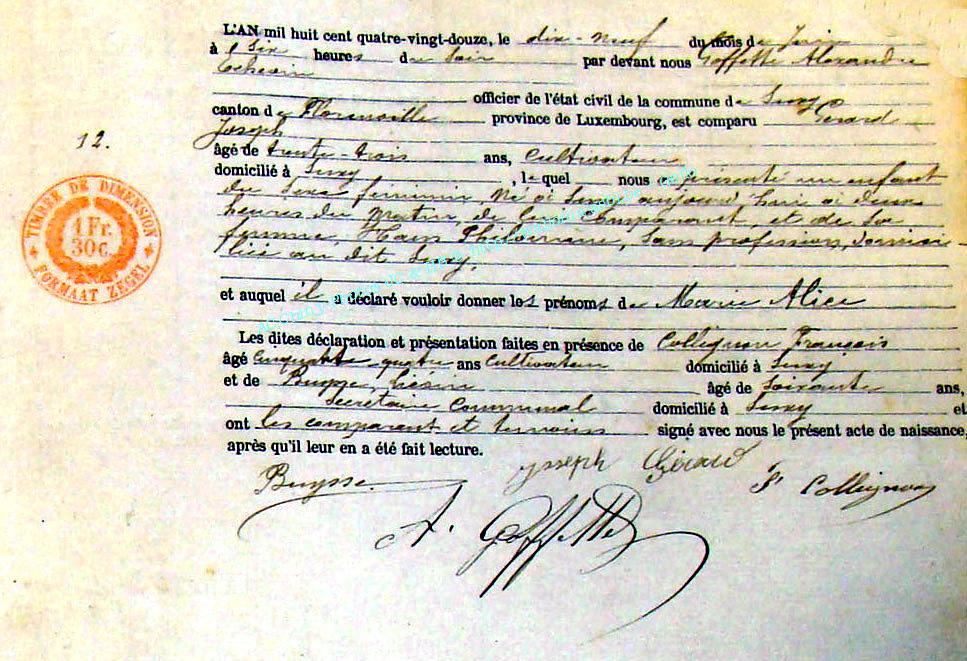 L'AN mil huit cent quatre-vingt-douze, le dix-neuf du mois de Juin
à six heures du Soir par devant nous Goffette Alexandre
Echevin
officier de l'état civil de la commune de Suxy
canton de Florenville province de Luxembourg, est comparu Gérard
Joseph
12.
âgé de trente-trois ans, Cultivateur
domicilié à Suxy, lequel nous a présenté un enfant
du Sexe féminin, né à Suxy aujourd'hui à deux
heures du matin, de lui Comparant, et de sa
femme, Philomène, Sans profession, domici-
liée au dit Suxy.
et auquel il a déclaré vouloir donner les prénoms de Marie Alice
Les dites déclaration et présentation faites en présence de Collignon François
âgé cinquante quatre ans Cultivateur domicilié à Suxy
et de Buysse, âgé de Soixante ans,
Secrétaire Communal domicilié à Suxy et
ont les comparant et temoins signé avec nous le présent acte de naissance,
après qu'il leur en a été fait lecture.
Buysse
Joseph Gérard
F. Collignon
A. Goffette
TIMBRE DE DIMENSION
1 Fr.
30c.
FORMAAT ZEGEL